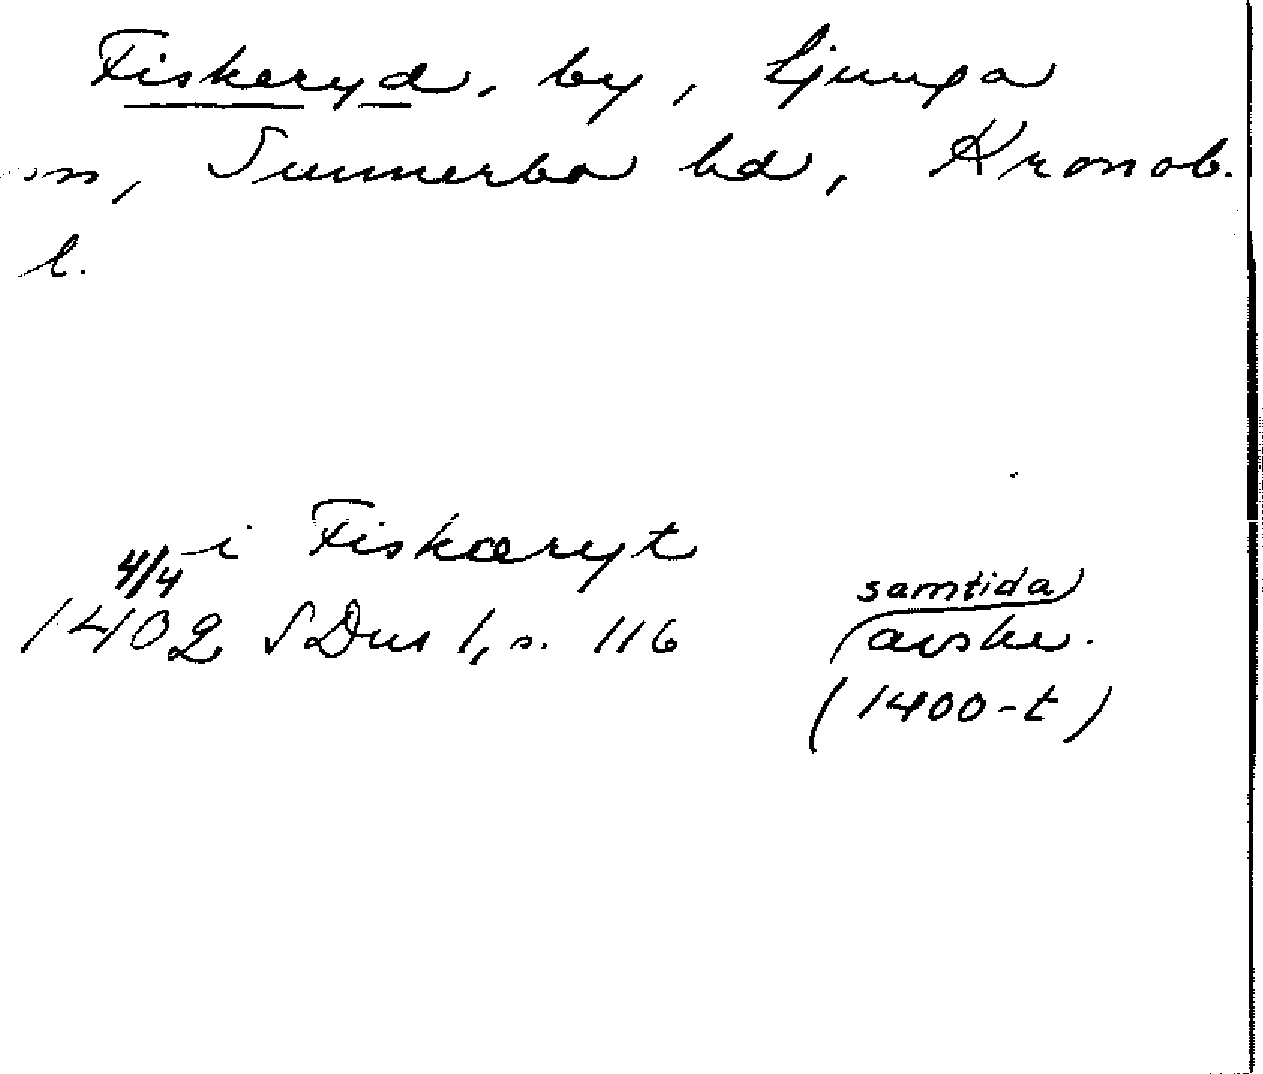 Fiskeryd, by, Ljunga
sn, Sunnerbo hd, Kronob.
l.
i Fiskæryt
4/4
1402 SDns 1, s. 116
samtida
avskr.
(1400-t)